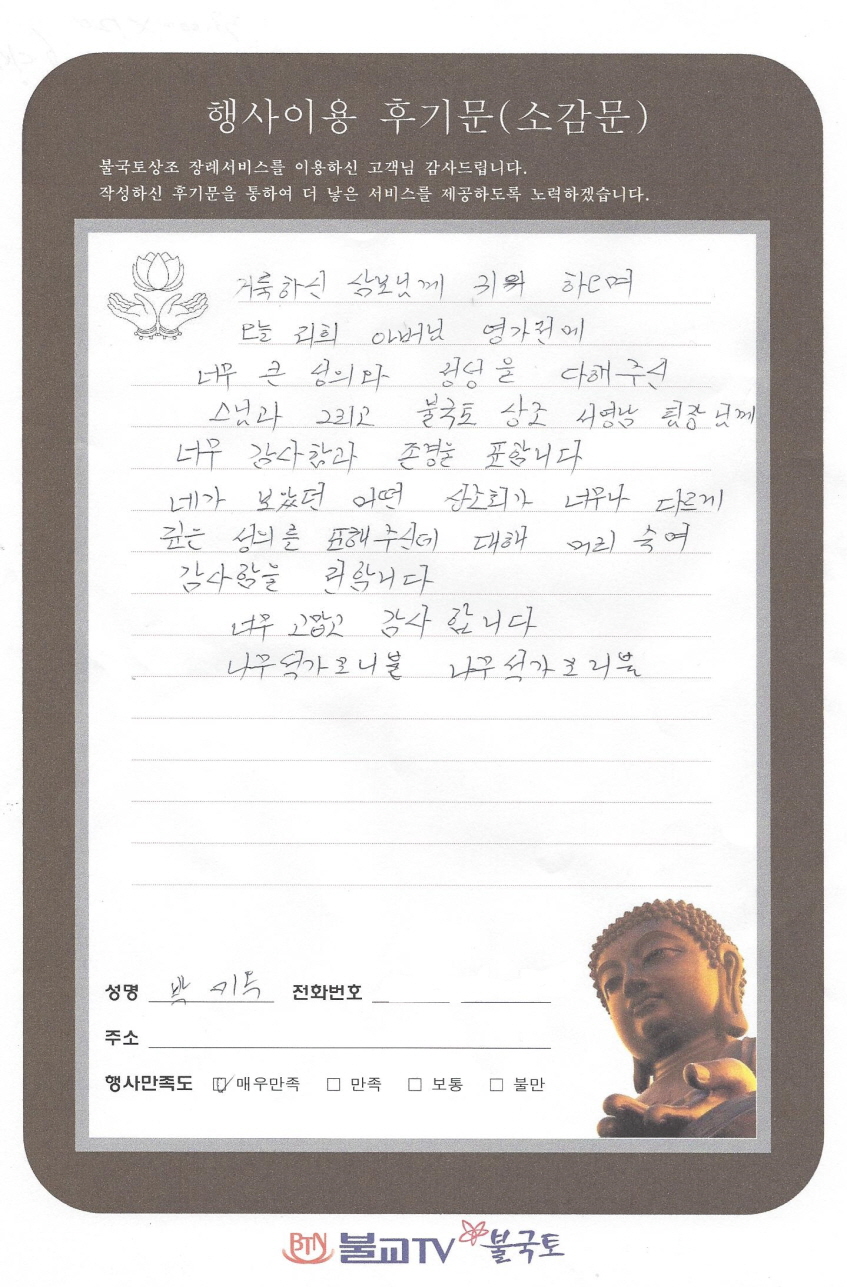 행사이용 후기문(소감문)
불국토상조 장례서비스를 이용하신 고객님 감사드립니다.
작성하신 후기문을 통하여 더 낳은 서비스를 제공하도록 노력하겠습니다.
거룩하신 삼보님께 귀의 하으며
오늘 저희 아버님 영가전에
너무 큰 성의와 정성을 다해주신
스님과 그리고 불국토 상조 서영남 팀장님께
너무 감사함과 존경을 표합니다
네가 보았던 어떤 상조회가 너무나 다르게
깊은 성의를 표해주신데 대해 머리 숙여
감사함을 전합니다
너무 고맙고 감사 합니다
나무석가모니불 나무석가모니불
성명 박 기득 전화번호
주소
행사만족도 매우만족 만족 보통 불만
BTN 불교TV 불국토